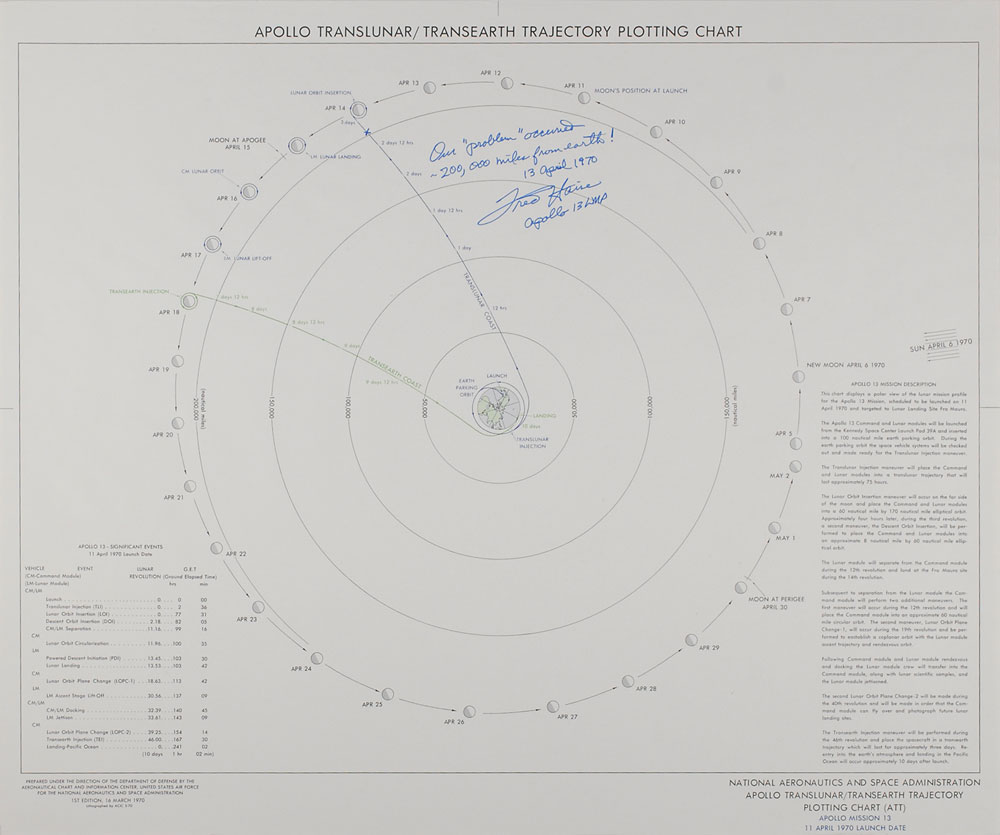 APOLLO TRANSLUNAR/TRANSEARTH TRAJECTORY PLOTTING CHART
APR 12
APR 13
APR 11
MOON'S POSITION AT LAUNCH
LUNAR ORBIT INSERTION
APR 14
3 days
APR 10
MOON AT APOGEE
APRIL 15
LM LUNAR LANDING
2 days 12 hrs
Our "problem" occurred
~200,000 miles from earth!
13 April 1970
Fred Haise
Apollo 13 LMP
CM LUNAR ORBIT
2 days
APR 9
APR 16
1 day 12 hrs
APR 8
APR 17
LM LUNAR LIFT-OFF
1 day
TRANSLUNAR COAST
TRANSEARTH INJECTION
days 12 hrs
8 days
12 hrs
APR 7
APR 18
8 days 12 hrs
SUN APRIL 6 1970
APR 19
TRANSEARTH COAST
9 days 12 hrs
NEW MOON APRIL 6 1970
LAUNCH
EARTH
PARKING
ORBIT
LANDING
10 days
TRANSLUNAR
INJECTION
(nautical miles)
200,000
150,000
100,000
50,000
50,000
100,000
150,000
(nautical miles)
APR 20
APR 5
MAY 2
APR 21
MAY 1
APR 22
MOON AT PERIGEE
APRIL 30
APR 23
APR 29
APR 24
APR 28
APR 25
APR 26
APR 27
APOLLO 13 MISSION DESCRIPTION
This chart displays a polar view of the lunar mission profile
for the Apollo 13 Mission, scheduled to be launched on 11
April 1970 and targeted to Lunar Landing Site Fra Mauro.
The Apollo 13 Command and Lunar modules will be launched
from the Kennedy Space Center Launch Pad 39A and inserted
into a 100 nautical mile earth parking orbit. During the
earth parking orbit the space vehicle systems will be checked
out and made ready for the Translunar Injection maneuver.
The Translunar Injection maneuver will place the Command
and Lunar modules into a translunar trajectory that will
last approximately 75 hours.
The Lunar Orbit Insertion maneuver will occur on the far side
of the moon and place the Command and Lunar modules
into a 60 nautical mile by 170 nautical mile elliptical orbit.
Approximately four hours later, during the third revolution,
a second maneuver, the Descent Orbit Insertion, will be per-
formed to place the Command and Lunar modules into
an approximate 8 nautical mile by 60 nautical mile ellip-
tical orbit.
The Lunar module will separate from the Command module
during the 12th revolution and land at the Fra Mauro site
during the 14th revolution.
Subsequent to separation from the Lunar module the Com-
mand module will perform two additional maneuvers. The
first maneuver will occur during the 12th revolution and will
place the Command module into an approximate 60 nautical
mile circular orbit. The second maneuver, Lunar Orbit Plane
Change-1, will occur during the 19th revolution and be per-
formed to establish a coplaner orbit with the Lunar module
ascent trajectory and rendezvous orbit.
Following Command module and Lunar module rendezvous
and docking the Lunar module crew will transfer into the
Command module, along with lunar scientific samples, and
the Lunar module jettisoned.
The second Lunar Orbit Plane Change-2 will be made during
the 40th revolution and will be made in order that the Com-
mand module can fly over and photograph future lunar
landing sites.
The Transearth Injection maneuver will be performed during
the 46th revolution and place the spacecraft in a transearth
trajectory which will last for approximately three days. Re-
entry into the earth's atmosphere and landing in the Pacific
Ocean will occur approximately 10 days after launch.
APOLLO 13 - SIGNIFICANT EVENTS
11 April 1970 Launch Date
VEHICLE EVENT LUNAR G.E.T
(CM-Command Module) REVOLUTION (Ground Elapsed Time)
(LM-Lunar Module) hrs min
CM/LM
Launch 0 0 00
Translunar Injection (TLI) 0 2 36
Lunar Orbit Insertion (LOI) 0 77
Descent Orbit Insertion (DOI) 2.18 82 05
CM/LM Separation 11.16 99 16
CM
Lunar Orbit Circularization 11.96 100
LM
Powered Descent Initiation (PDI) 13.45 103 30
Lunar Landing 13.53 103 42
CM
Lunar Orbit Plane Change (LOPC-1) 18.63 113 42
LM
LM Ascent Stage Lift-Off 30.56 137 09
CM/LM
CM/LM Docking 32.39 140 45
LM Jettison 33.61 143 09
CM
Lunar Orbit Plane Change (LOPC-2) 39.25 154 14
Transearth Injection (TEI) 46.00 167 30
Landing-Pacific Ocean 0 241 02
(10 days 1 hr 02 min)
PREPARED UNDER THE DIRECTION OF THE DEPARTMENT OF DEFENSE BY THE
AERONAUTICAL CHART AND INFORMATION CENTER, UNITED STATES AIR FORCE
FOR THE NATIONAL AERONAUTICS AND SPACE ADMINISTRATION
1ST EDITION, 16 MARCH 1970
NATIONAL AERONAUTICS AND SPACE ADMINISTRATION
APOLLO TRANSLUNAR/TRANSEARTH TRAJECTORY
PLOTTING CHART (ATT)
APOLLO MISSION 13
11 APRIL 1970 LAUNCH DATE